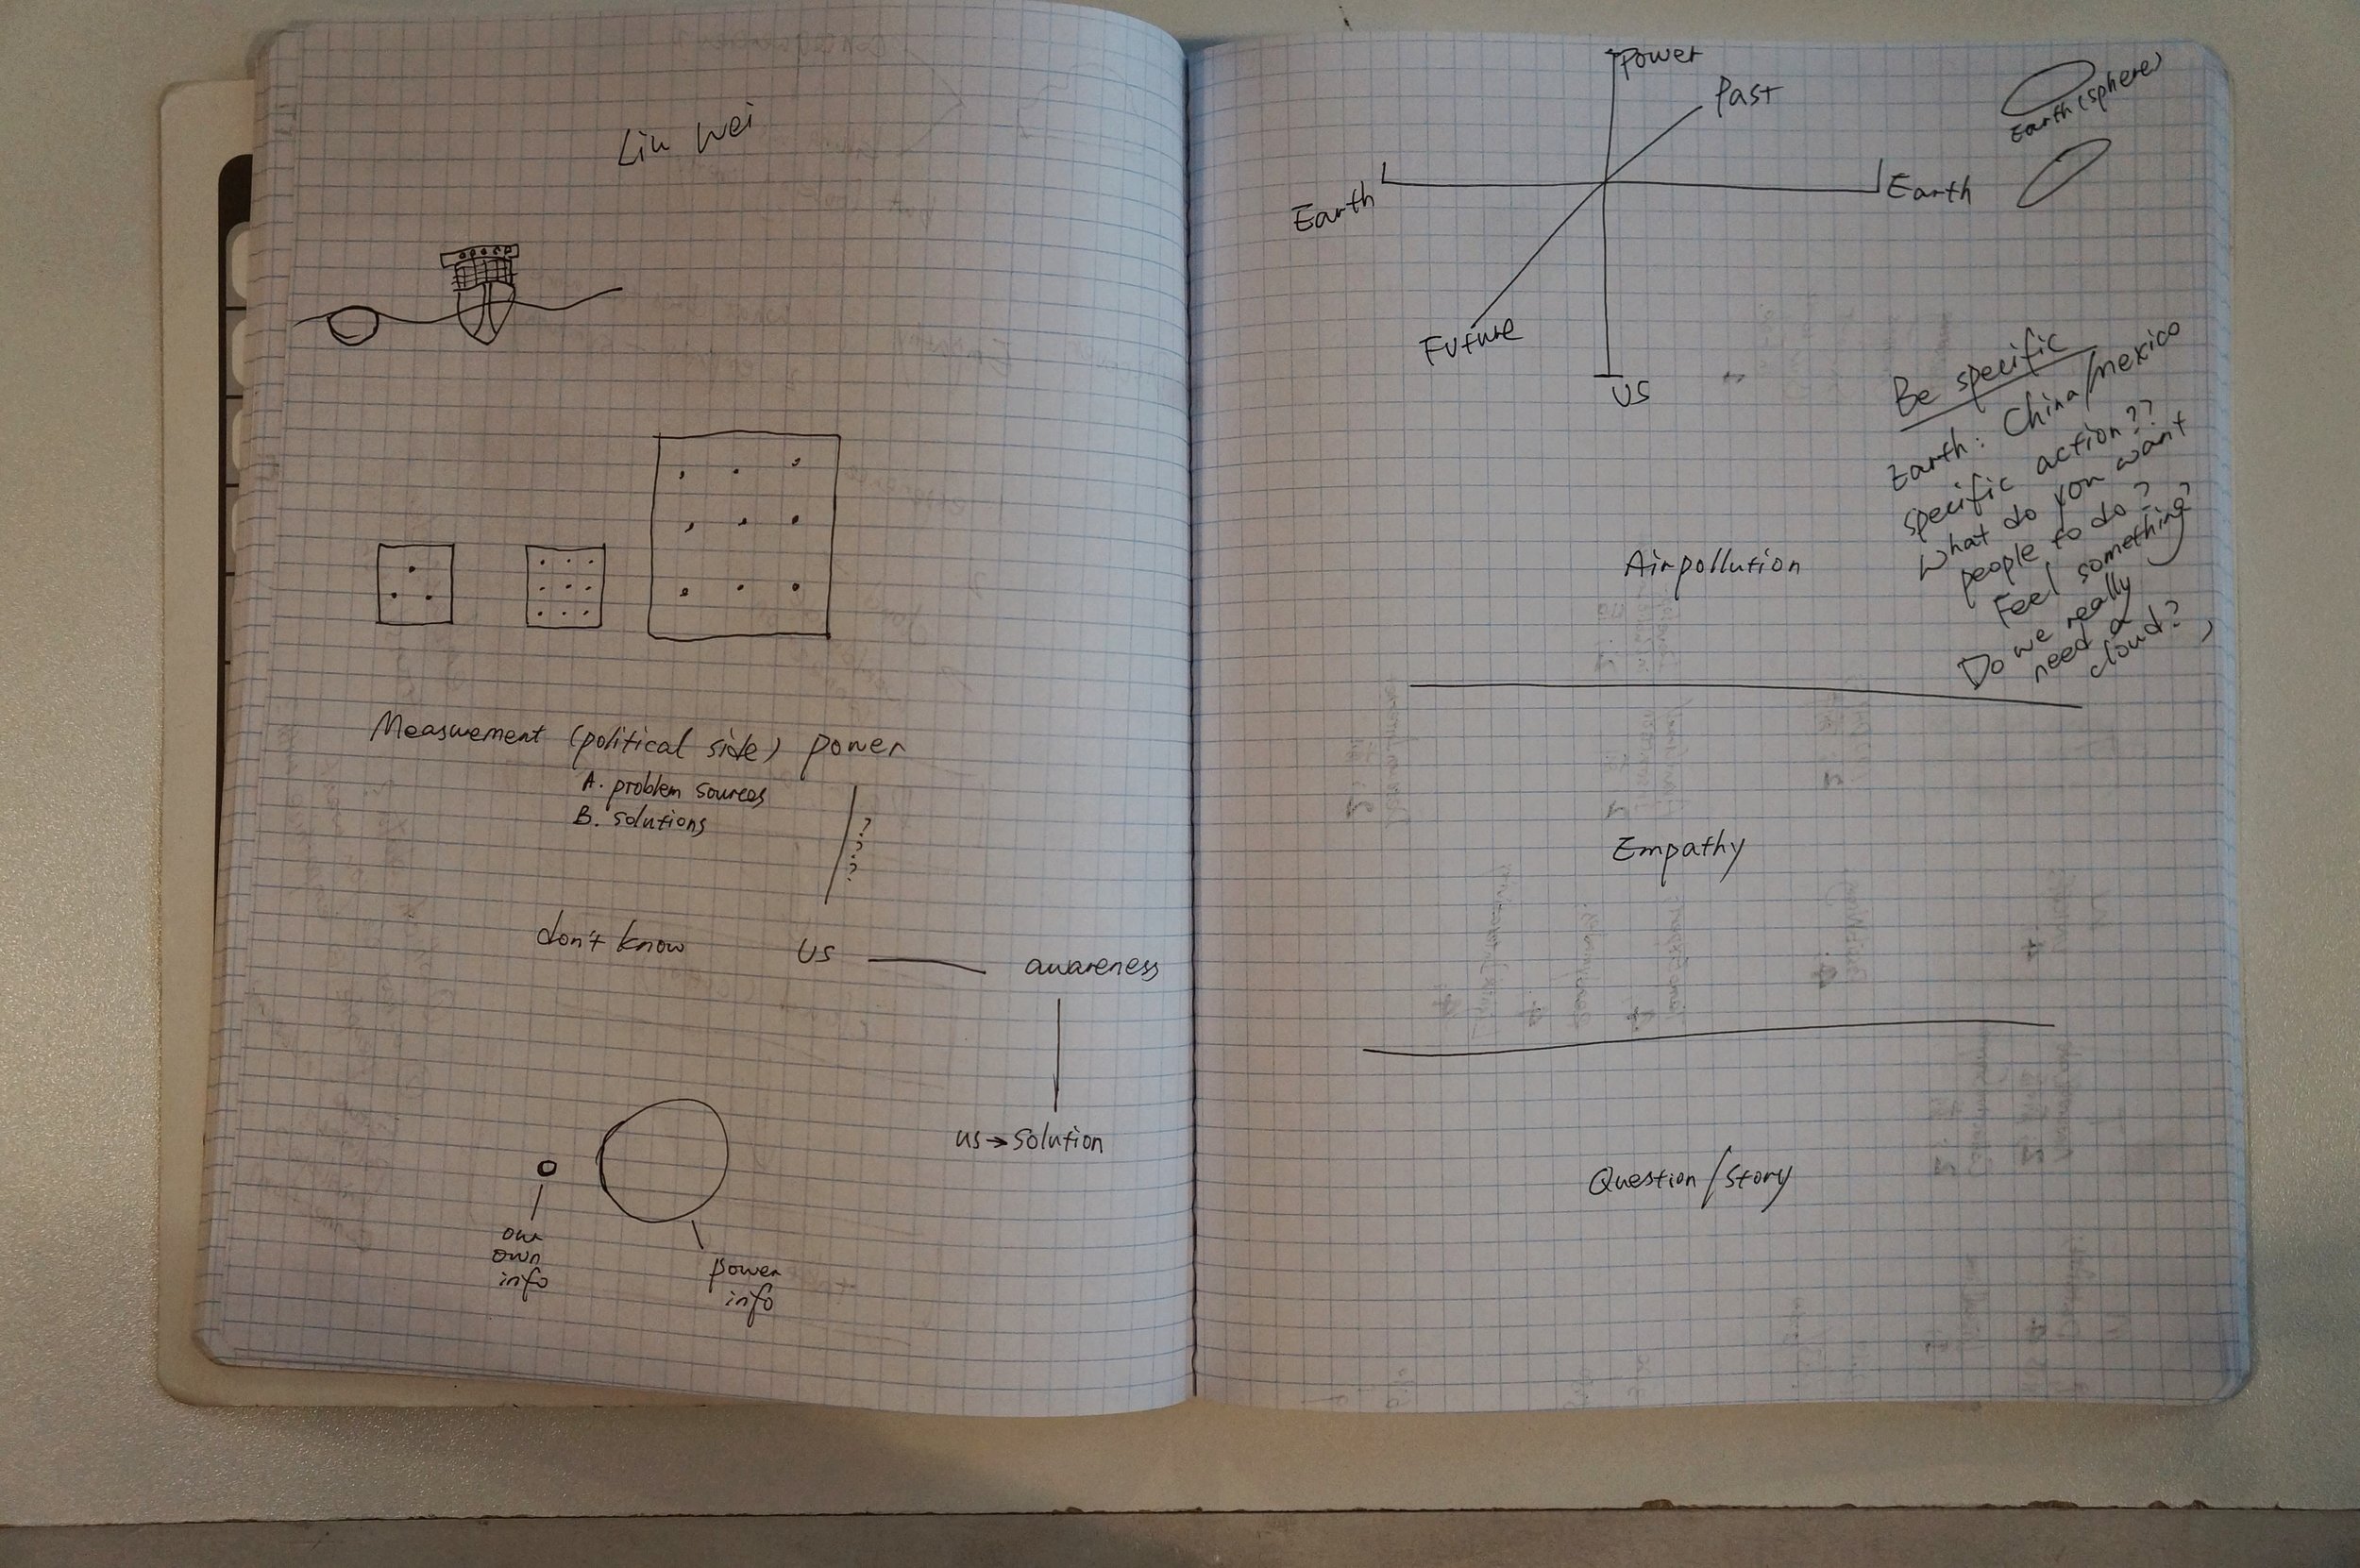 Liu Wei
Measurement (political side) power
A. problem sources
B. solutions
?
?
?
don't know
us
awareness
us→solution
our
own
info
power
info
Power
Past
Earth
Earth
Future
us
Earth (sphere)
Be specific
Earth: China/Mexico
specific action??
What do you want
people to do?
Feel something?
Do we really
need a
cloud?
Airpollution
Empathy
Question/story